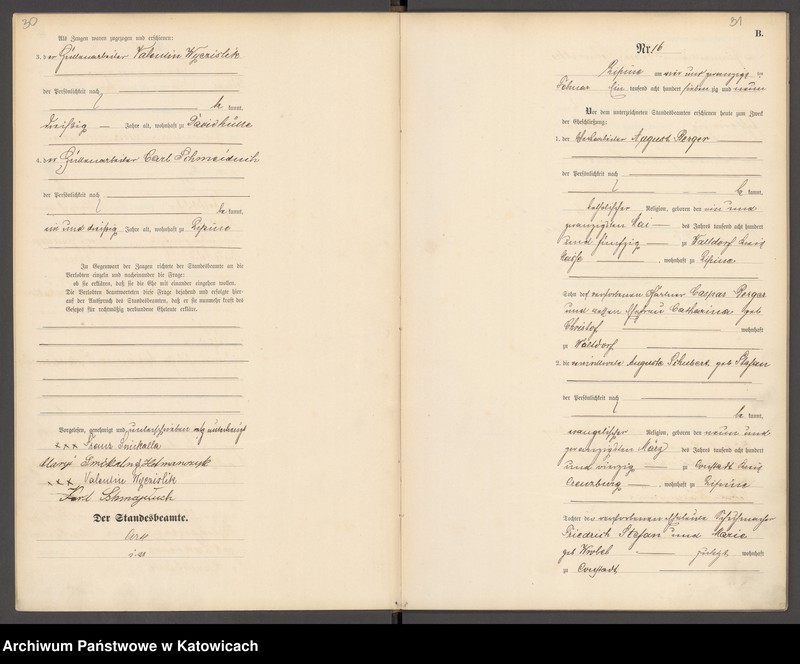 30
Als Zeugen waren zugezogen und erschienen:
3. der Hüttenarbeiter Valentin Wyzislik
der Persönlichkeit nach
kannt,
dreißig Jahre alt, wohnhaft zu Davidhütte
4. der Hüttenarbeiter Carl
der Persönlichkeit nach
be kannt,
ein und dreißig Jahre alt, wohnhaft zu Lipine
In Gegenwart der Zeugen richtete der Standesbeamte an die
Verlobten einzeln und nacheinander die Frage:
ob sie erklären, daß sie die Ehe mit einander eingehen wollen.
Die Verlobten beantworteten diese Frage bejahend und erfolgte hier-
auf der Ausspruch des Standesbeamten, daß er sie nunmehr kraft des
Gesetzes für rechtmäßig verbundene Eheleute erkläre.
Vorgelesen, genehmigt und unterschrieben
xxx Franz Smikalla
xxx Valentin Wyzislik
Karl
Der Standesbeamte.
31
B.
Nr. 16
Lipine am vier und zwanzigsten
Februar Ein tausend acht hundert sieben zig und neun
Vor dem unterzeichneten Standesbeamten erschienen heute zum Zweck
der Eheschließung:
1. der August Berger
der Persönlichkeit nach
be kannt,
katholischer Religion, geboren den vier und
zwanzigsten Mai des Jahres tausend acht hundert
und fünfzig zu Walldorf Kreis
Neiße, wohnhaft zu Lipine
Sohn des verstorbenen Gärtner Caspar Berger
und dessen Ehefrau Catharina geb
Christof wohnhaft
zu Walldorf
2. die verwittwete Auguste Schubert geb Stefan
der Persönlichkeit nach
be kannt,
evangelischer Religion, geboren den neun und
zwanzigsten März des Jahres tausend acht hundert
und vierzig zu Constadt Kreis
Creuzburg, wohnhaft zu Lipine
Tochter der verstorbenen Eheleute Schuhmacher
Friedrich Stefan und Marie
geb Wrobel zuletzt wohnhaft
zu Constadt
Archiwum Państwowe w Katowicach